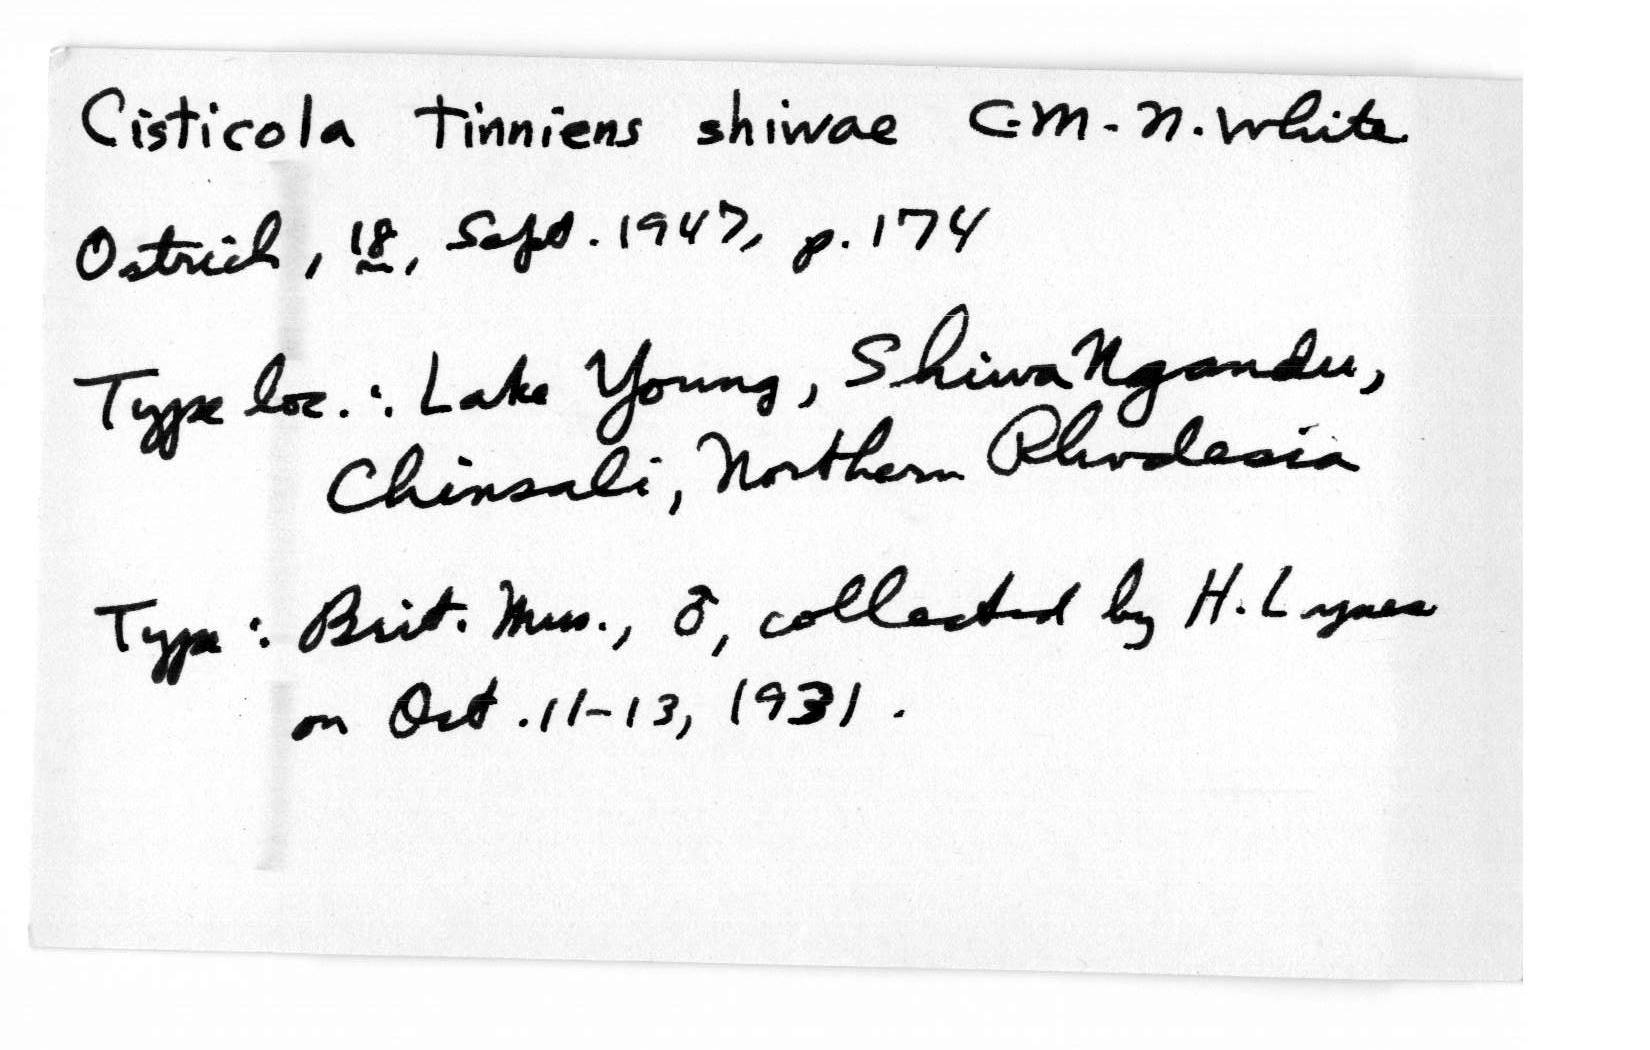 Cisticola tinniens shiwae C.M.N. White
Ostrich, 18, Sept. 1947, p. 174
Type loc.: Lake Young, Shiwa Ngandu,
Chinsali, Northern Rhodesia
Type: Brit. Mus., ♂, collected by H. Lynes
on Oct. 11-13, 1931.